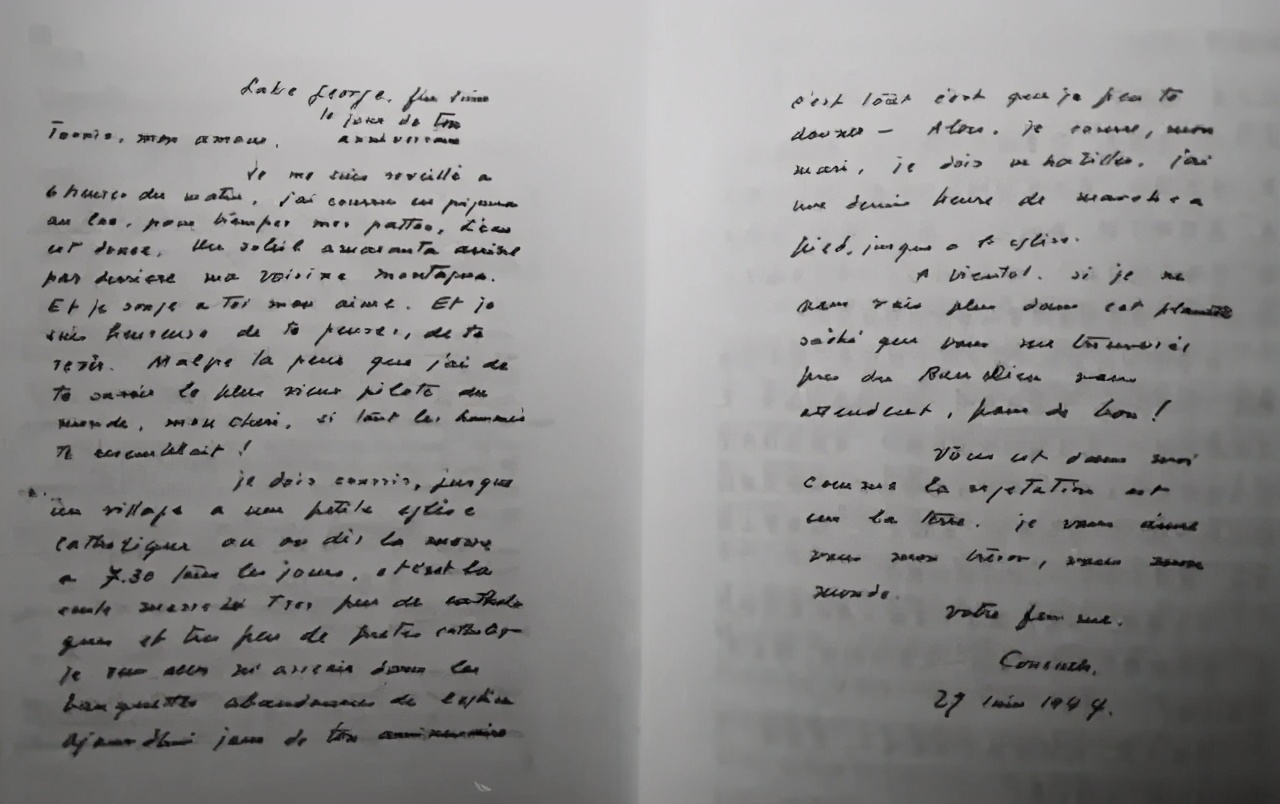 Lake George.
le jour de ton
Tonnio, mon amour. anniversaire
Je me suis reveillé a
6 heures du matin, j'ai couru en pijama
au lac, pour tremper mes pattes, L'eau
est douce. Un soleil amaranta arrive
par derriere ma voisine montagna.
Et je songe a Toi mon aimé. Et je
suis heureuse de te penser, de te
rever. Malgre la peur que j'ai de
te savoir le plus vieux pilote du
monde, mon cheri, si tout les hommes
Te ressemblait !
je dois courrir, jusque
un village a une petite eglise
catholique ou on dis la messe
a 7.30 tous les jours, et c'est la
seule messe Tres peu de catholi
ques et tres peu de pretes catholiq-
je m'asseoir dans les
banquettes abandonnees de l'eglise
Ajourdhui jour de ton anniversaire
c'est tout c'est que je peu te
donner — Alors. je courre, mon
mari, je dois m habiller. j'ai
une demie heure de marche a
pied, jusque a l'eglise.
A bientot. si je ne
vous vois plus dans cet planete
sachè que vous me trouverès
pres du Bon Dieu vous
attendent, pour de bon !
Vous est dans moi
comme la vejetation est
sur la terre. je vous aime
vous mon trèsor, vous mon
monde.
Votre femme.
Consuelo.
29 Juin 1944.